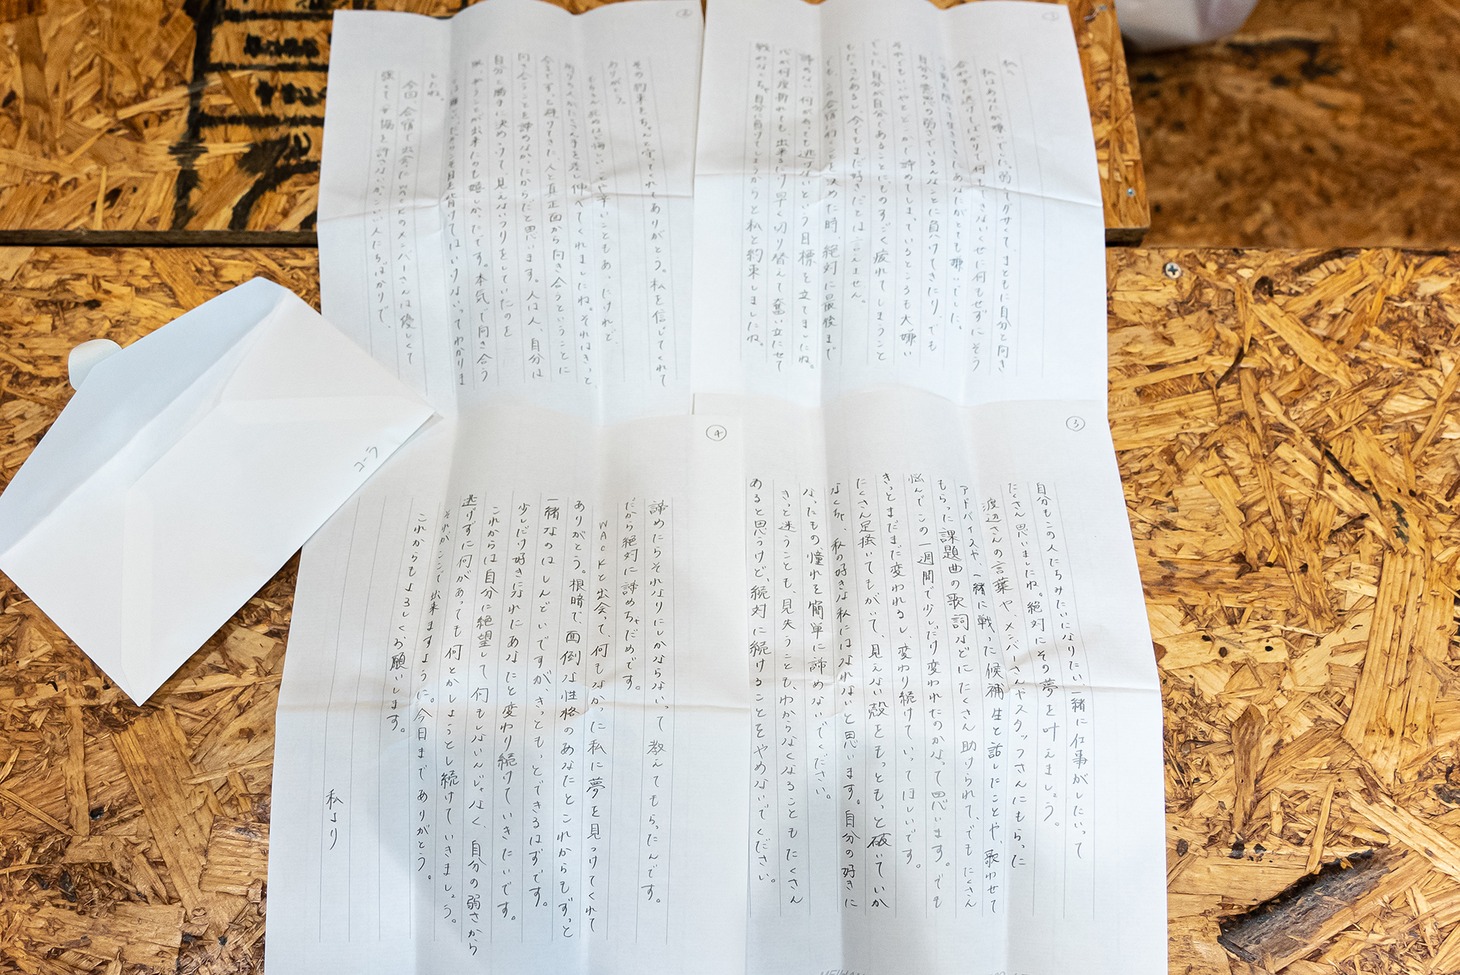 ①
私へ
私はあなたが嫌いでした。弱くてダサくて、まともに自分と向き
合わずに逃げてばかりで何もできないくせに何もせずに、そう
やって前を向いて生きてきたあなたがとても嫌いでした。
自分の意思の弱さでいろんなことに負けてきたり、でも
それでもいいやとどこかで諦めてしまっているところも大嫌い
でした。自分が自分であることにものすごく疲れてしまうこと
もたくさんあるし、今でもまだ好きだとは言えません。
でも、この合宿に行くと決めた時、絶対に最後まで
諦めない、何があっても逃げないという目標を立てましたね。
心が何度折れても、出来るだけ早く切り替えて奮い立たせて
戦わなくちゃ自分に負けてしまうからと私と約束しましたね。
②
その約束をちゃんと守ってくれてありがとう。私を信じてくれて
ありがとう。
もちろん、死ぬほど悔しいことや辛いこともあったけれど、
周りもたくさん手を差し伸べてくれましたね。それはきっと、
今までずっと避けてきた、人と真正面から向き合うということに
向き合うことを諦めなかったからだと思います。人は人、自分は
自分と勝手に決めつけて見えないフリをしていたのを
止めることが出来たのも嬉しかったです。本気で向き合う
には
目を背けてはいけないってわかりま
したね。
今回合宿で出会ったWACKのメンバーさんは優しくて
強くて、妥協を許さないかっこいい人たちばかりで、
③
自分もこの人たちみたいになりたい、一緒に仕事がしたいって
たくさん思いましたね。絶対にその夢を叶えましょう。
渡辺さんの言葉や、メンバーさんやスタッフさんにもらった
アドバイスや、一緒に戦った候補生と話したことや、歌わせて
もらった課題曲の歌詞などにたくさん助けられて、でもたくさん
悩んでこの一週間で少しだけ変われたのかなって思います。でも
きっとまだまだ変われるし、変わり続けていってほしいです。
たくさん足掻いてもがいて、見えない殻をもっともっと破いていか
なくちゃ、私の好きな私にはなれないと思います。自分の好きに
なったもの憧れを簡単に諦めないでください。
きっと迷うことも、見失うことも、わからなくなることもたくさん
あると思うけど、絶対に続けることをやめないでください。
④
諦めたらそれなりにしかならないって教えてもらったんです。
だから絶対に諦めちゃだめです。
WACKと出会って、何もなかった私に夢を見つけてくれて
ありがとう。根暗で面倒な性格のあなたとこれからもずっと
一緒なのはしんどいですが、きっともっとできるはずです。
少しだけ好きになれたあなたと変わり続けていきたいです。
これからは自分に絶望して何もしないんじゃなく、自分の弱さから
逃げずに何があっても何とかしようとし続けていきましょう。
それがここで出来ますように。今日までありがとう。
これからもよろしくお願いします。
私より
コーラ